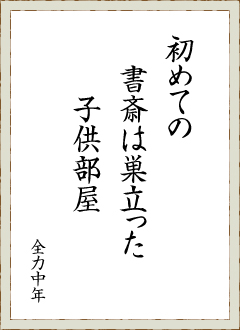 初めての
書斎は巣立った
子供部屋
全力中年